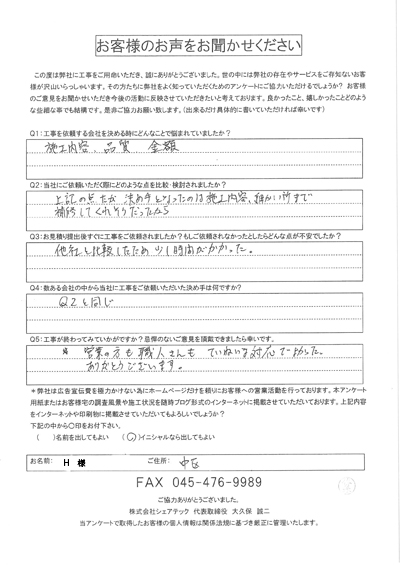 お客様のお声をお聞かせください
この度は弊社に工事をご用命いただき、誠にありがとうございました。世の中には弊社の存在やサービスをご存知ないお客
様が沢山いらっしゃいます。その方たちに弊社をよく知っていただくためのアンケートにご協力いただけるでしょうか？ お客様
のご意見をお聞かせいただき今後の活動に反映させていただきたいと考えております。良かったこと、嬉しかったことどのよう
な些細な事でも結構です。是非ご協力お願い致します。（出来るだけ具体的に書いていただければ幸いです）
Q1：工事を依頼する会社を決める時にどんなことで悩まれていましたか？
施工内容、品質 金額
Q2：当社にご依頼いただく際にどのような点を比較・検討されましたか？
上記の点だが 決め手となったのは施工内容、細かい所まで
補修してくれそうだったから
Q3：お見積り提出後すぐに工事をご依頼されましたか？もしご依頼されなかったとしたらどんな点が不安でしたか？
他社と比較したため少し時間がかかった。
Q4：数ある会社の中から当社に工事をご依頼いただいた決め手は何ですか？
Q2と同じ
Q5：工事が終わってみていかがですか？忌憚のないご意見を頂戴できましたら幸いです。
営業の方も職人さんも ていねいな対応でよかった。
ありがとうございます。
＊弊社は広告宣伝費を極力かけない為にホームページだけを頼りにお客様への営業活動を行っております。本アンケート
用紙またはお客様宅の調査風景や施工状況を随時ブログ形式のインターネットに掲載させていただいております。上記内容
をインターネットや印刷物に掲載させていただいてもよろしいでしょうか？
下記の中から○印をお付下さい。
（ ）名前を出してもよい （○）イニシャルなら出してもよい
お名前： H 様 ご住所： 中区
FAX 045-476-9989
ご協力ありがとうございました。
株式会社シェアテック 代表取締役 大久保 誠二
当アンケートで取得したお客様の個人情報は関係法規に基づき厳正に管理いたします。